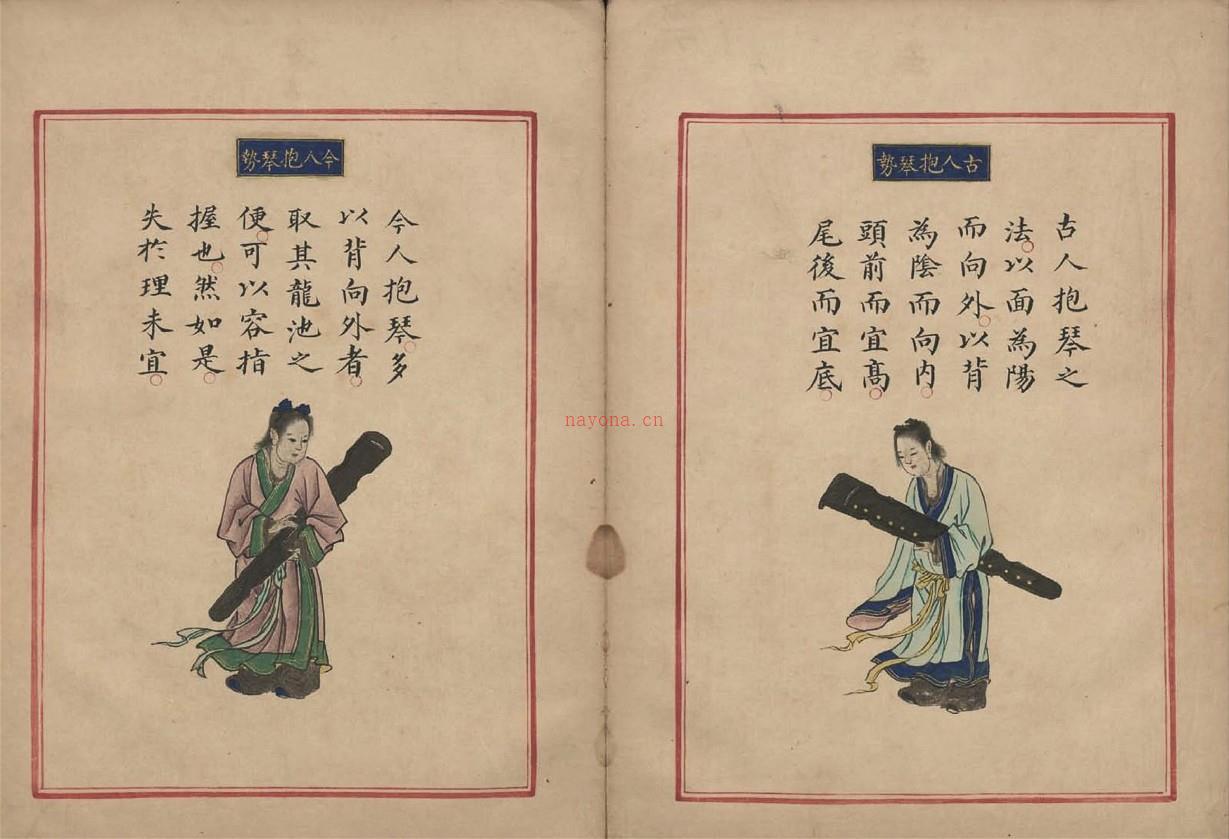 古人抱琴勢
古人抱琴之
法以面為陽
而向外以背
為陰而向内
頭前而宜高
尾後而宜底
今人抱琴勢
今人抱琴多
以背向外者
取其龍池之
便可以容指
握也然如是
失於理未宜
nayona.cn